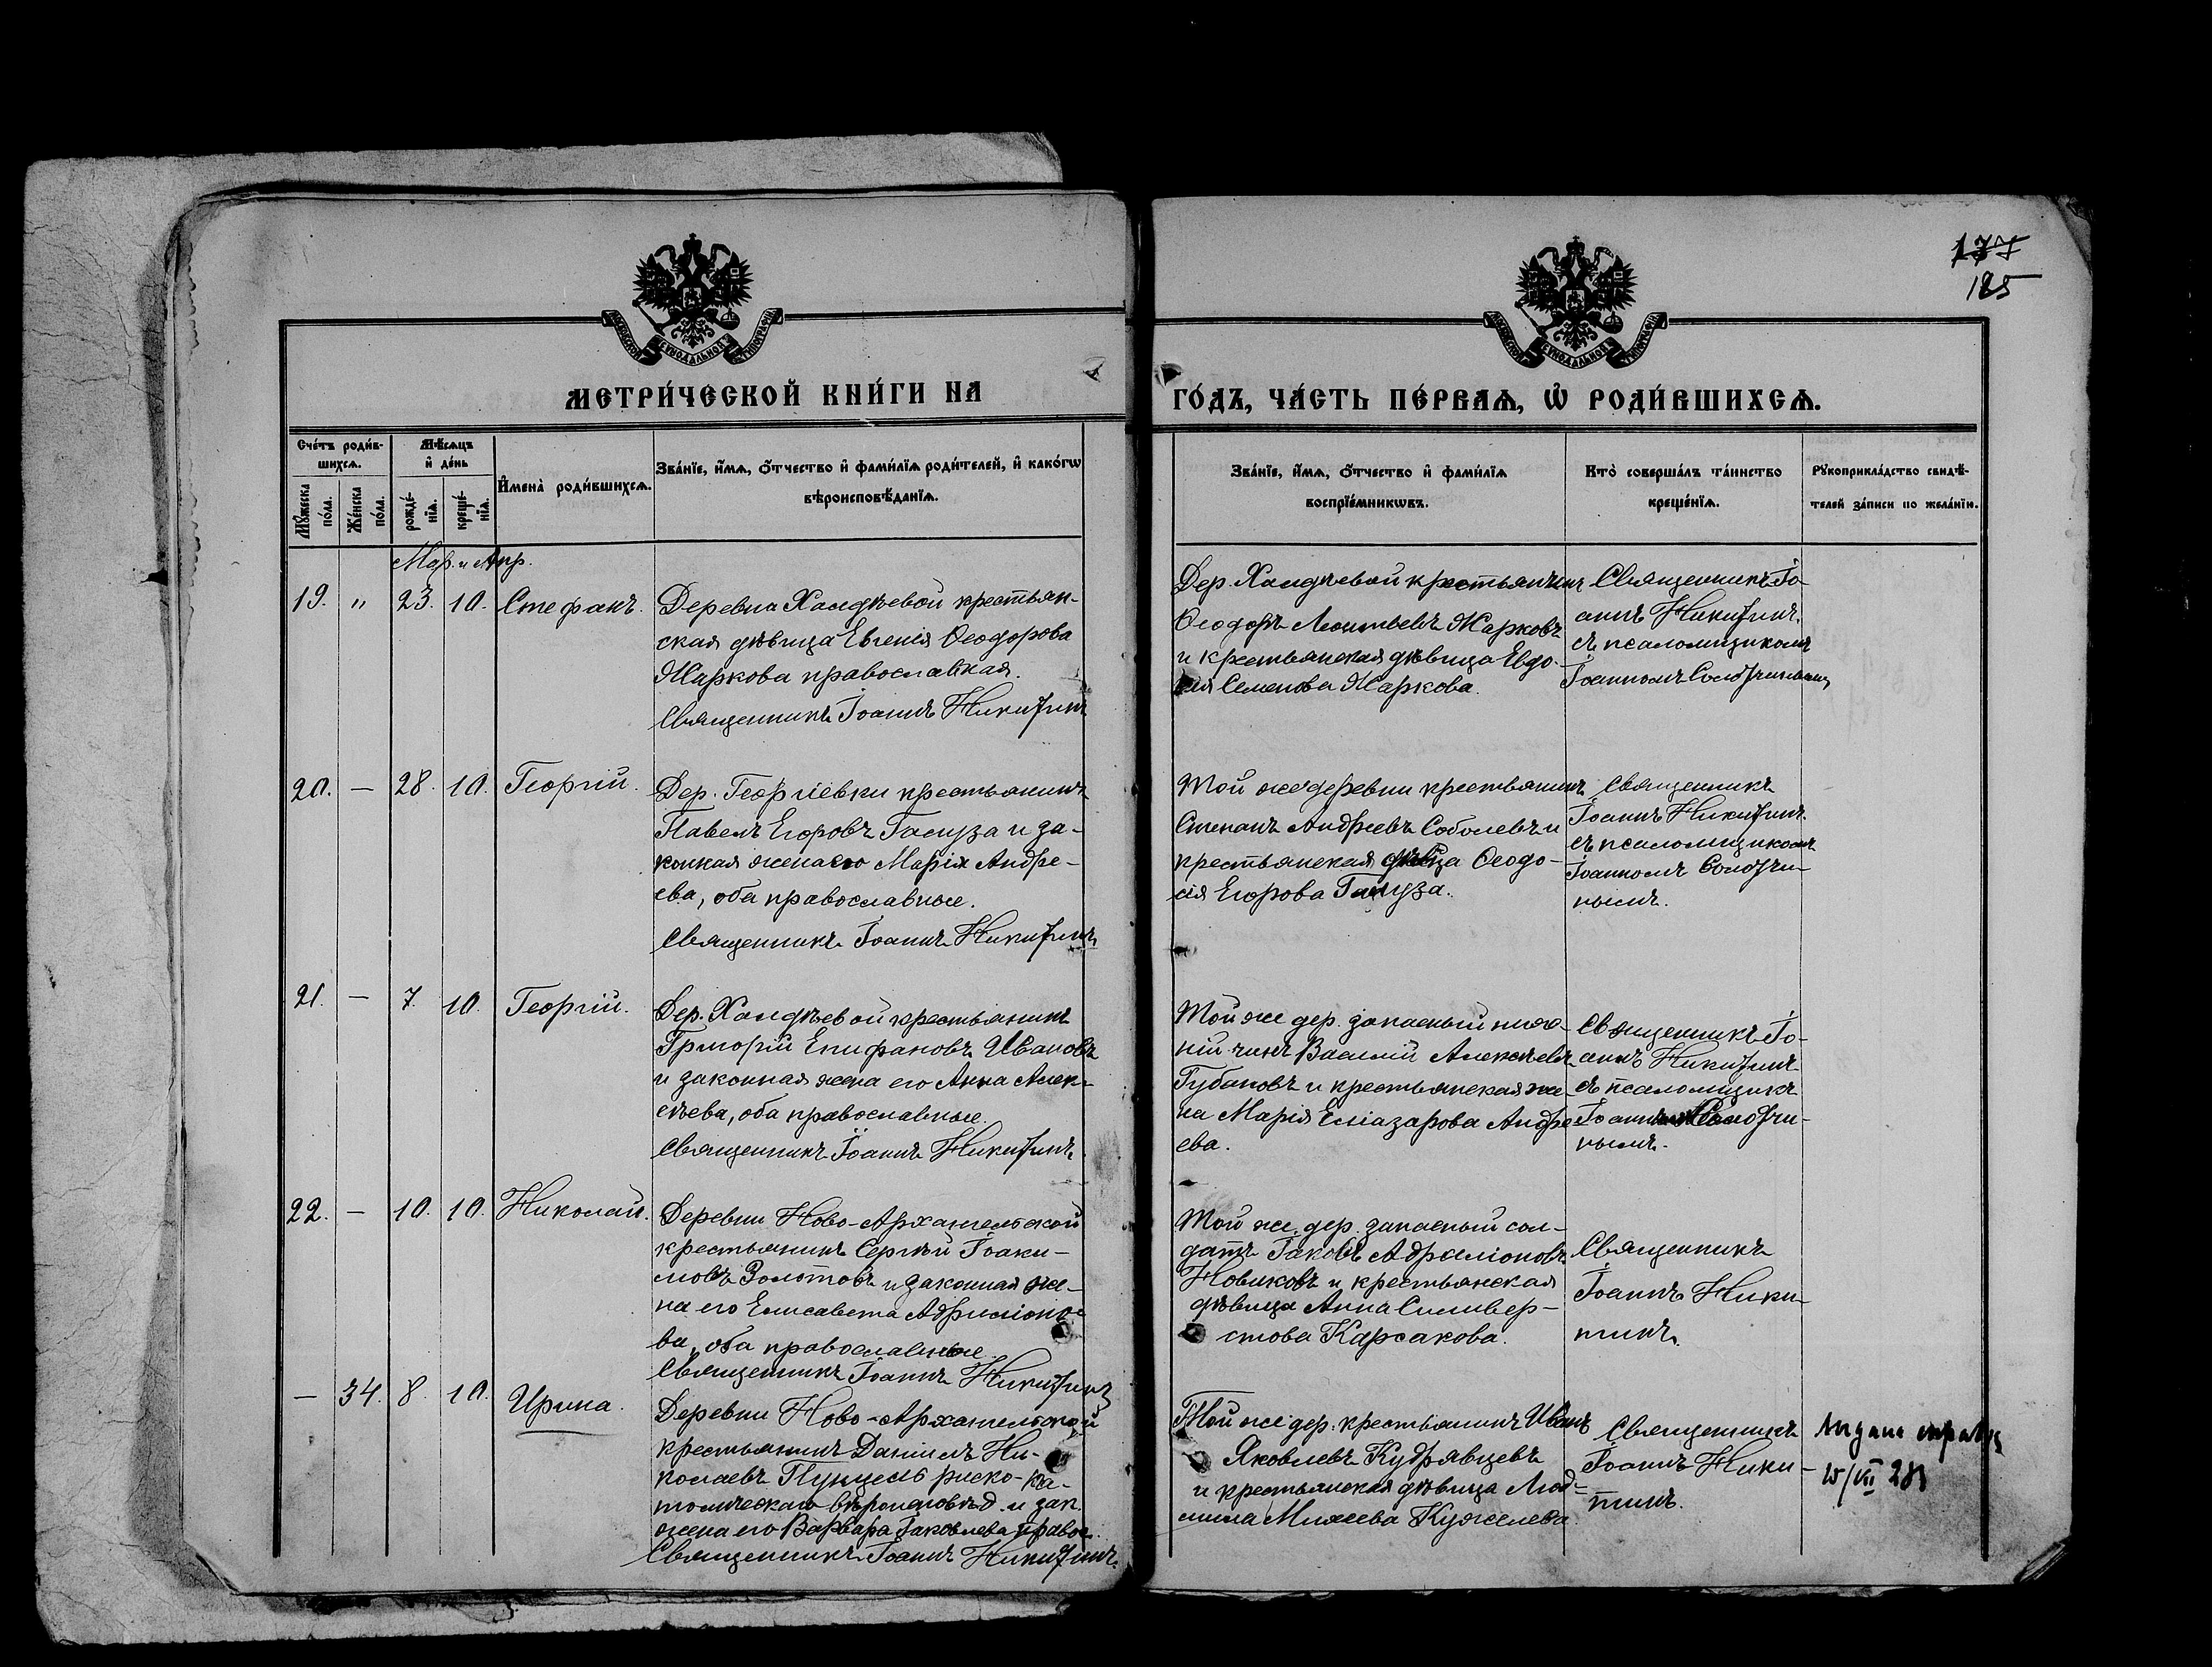 177
185
МОСКОВСКОЙ СѴНОДАЛЬНОЙ ТИПОГРАФІИ
МОСКОВСКОЙ СѴНОДАЛЬНОЙ ТИПОГРАФІИ
МЕТРИ́ЧЕСКОЙ КНИ́ГИ НА
ГО́ДЪ, ЧА́СТЬ ПЕ́РВАѦ, Ѡ҆ РОДИ́ВШИХСѦ.
Сче́тъ роди́в-
шихсѧ.
Мꙋ́жеска
по́ла.
Же́нска
по́ла.
Мѣ́сѧцъ
и҆ де́нь
рожде́-
нїѧ.
креще́-
нїѧ.
И҆мена̀ роди́вшихсѧ.
Зва́нїе, и҆́мѧ, ѻ҆́тчество и҆ фами́лїѧ роди́телей, и҆ како́гѡ
вѣроисповѣ́данїѧ.
Зва́нїе, и҆́мѧ, ѻ҆́тчество и҆ фами́лїѧ
воспрїе́мникѡвъ.
Кто̀ соверша́лъ та́инство
креще́нїѧ.
Рꙋкоприкла́дство свидѣ́-
телей за́писи по жела́нїю.
Мар. и Апр.
19. " 23. 10. Стефанъ.
Деревни Халдѣевой крестьян-
ская дѣвица Евгенія Ѳеодорова
Маркова православная.
Священникъ Іоаннъ Никитинъ
Дер. Халдѣевой крестьянинъ
Ѳеодоръ Леонтьевъ Марковъ
и крестьянская дѣвица Евдо-
кія Семенова Маркова.
Священникъ Іо-
аннъ Никитинъ.
съ псаломщикомъ
Іоанномъ Солодчинымъ
20. — 28. 10. Георгій.
Дер. Георгіевки крестьянинъ
Павелъ Егоровъ Галуза и за-
конная жена его Марія Андре-
ева, оба православные.
Священникъ Іоаннъ Никитинъ
Той же деревни крестьянинъ
Степанъ Андреевъ Соболевъ и
крестьянская дѣвица Ѳеодо-
сія Егорова Галуза.
Священникъ
Іоаннъ Никитинъ.
съ псаломщикомъ
Іоанномъ Солодчи-
нымъ.
21. — 7. 10. Георгій.
Дер. Халдѣевой крестьянинъ
Григорій Епифановъ Ивановъ
и законная жена его Анна Алек-
сѣева, оба православные.
Священникъ Іоаннъ Никитинъ
Той же дер. запасный ниж-
ній чинъ Василій Алексѣевъ
Губановъ и крестьянская же-
на Марія Еліазарова Андре-
ева.
Священникъ Іо-
аннъ Никитинъ
съ псаломщикъ
Іоанномъ Солодчи-
нымъ.
22. — 10. 10. Николай.
Деревни Ново-Архангельской
крестьянинъ Сергѣй Іоаки-
мовъ Золотовъ и законная же-
на его Елисавета Адриліоно-
ва, оба православные
Священникъ Іоаннъ Никитинъ
Той же дер. запасный сол-
датъ Іаковъ Адриліоновъ
Новиковъ и крестьянская
дѣвица Анна Сильвер-
стова Карсакова.
Священникъ
Іоаннъ Ники-
тинъ.
— 34. 8. 10. Ирина.
Деревни Ново-Архангельской
крестьянинъ Даніилъ Ни-
колаевъ римско-ка-
толическаго вѣроисповѣд. и зак.
жена его Варвара Іаковлева правос.
Священникъ Іоаннъ Никитинъ.
Той же дер. крестьянинъ Иванъ
Яковлевъ Кудрявцевъ
и крестьянская дѣвица Люд-
мила Михеева Кужелева
Священникъ
Іоаннъ Ники-
тинъ.
справка